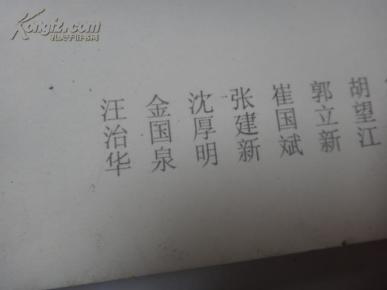 孔夫子旧书网
KongfZ.com
胡望江
郭立新
崔国斌
张建新
沈厚明
金国泉
汪治华